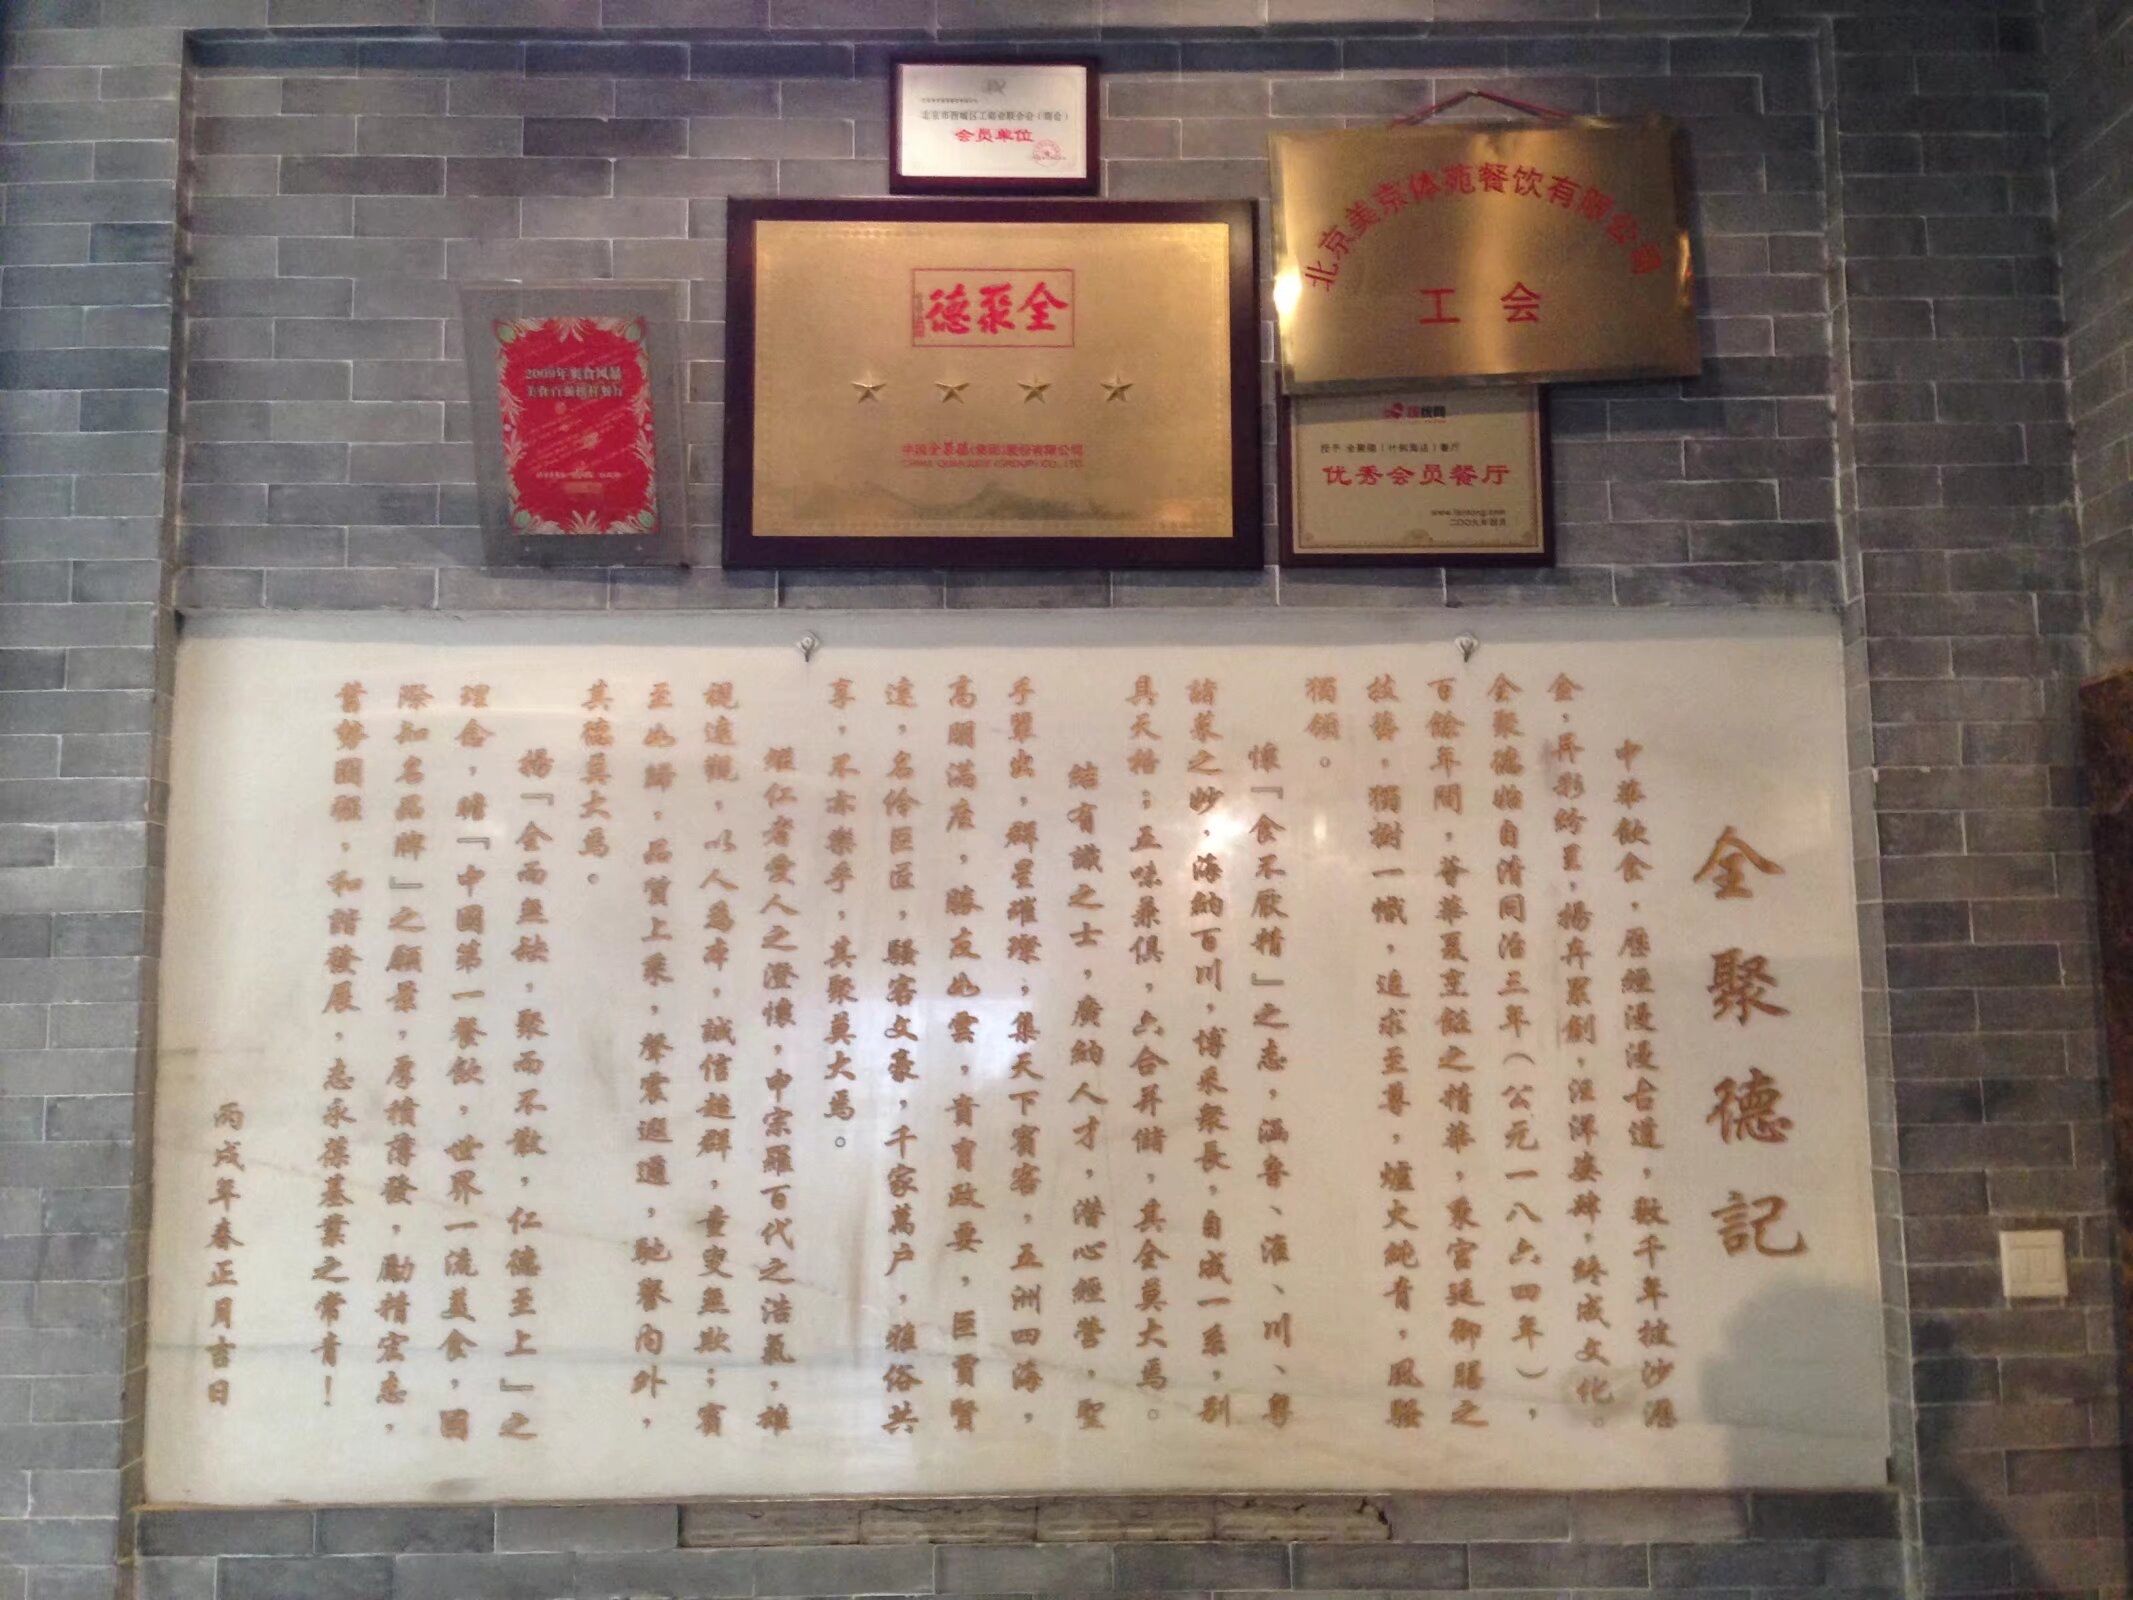 北京市西城区工商业联合会（商会）
会员单位
北京美京体苑餐饮有限公司
工会
全聚德
中国全聚德(集团)股份有限公司
CHINA QUANJUDE (GROUP) CO., LTD.
2009年美食风暴
授予 全聚德（什刹海店）餐厅
优秀会员餐厅
二〇〇九年四月
全聚德記
中華飲食，歷經漫漫古道，數千年披沙瀝
金，異彩紛呈，揚弃累創，汪洋姿肆，終成文化。
全聚德始自清同治三年（公元一八六四年），
百餘年間，薈華夏烹飪之精華，秉宮廷御膳之
技藝，獨樹一幟，追求至尊，爐火純青，風騷
獨領。
懷『食不厭精』之志，涵魯、淮、川、粵
諸菜之妙，海納百川，博采衆長，自成一系，别
具天格；五味兼俱，六合并儲，其全莫大焉。
結有識之士，廣納人才，潜心經營，聖
手輩出，群星璀璨；集天下賓客，五洲四海，
高朋滿座，勝友如雲，貴胄政要，巨賈賢
達，名伶巨匠，騷客文豪，千家萬户，雅俗共
享，不亦樂乎，其聚莫大焉。
繼仁者愛人之澄懷，申宗羅百代之浩氣，雄
視遠觀，以人爲本，誠信超群，童叟無欺；賓
至如歸，品質上乘，聲震遐邇，馳譽内外，
其德莫大焉。
揚『全而無缺，聚而不散，仁德至上』之
理念，瞻『中國第一餐飲，世界一流美食，國
際知名品牌』之願景，厚積薄發，勵精宏志，
蓄勢圖强，和諧發展，志永葆基業之常青！
丙戌年春正月吉日